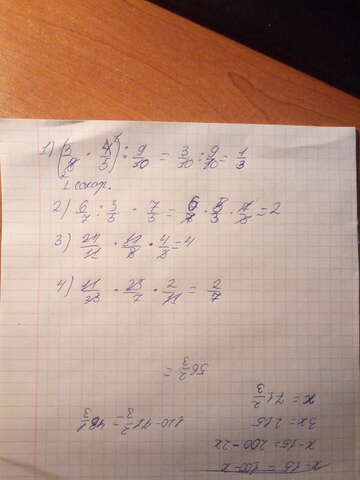 1) (3/8 · 4/5) : 9/10 = 3/10 : 9/10 = 1/3
1 сокр.
2) 6/7 · 5/3 · 7/5 = 6/7 · 5/3 · 7/5 = 2
3) 24/11 · 11/8 · 4/3 = 4
4) 11/23 · 23/7 · 2/11 = 2/7
x-15 = 100-x
x-15 = 200-2x
3x = 215
x = 71 2/3
120-71 2/3 = 48 1/3
= 56 2/3